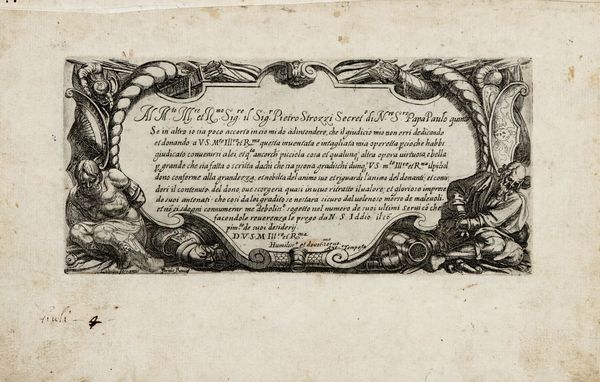 Al M.to Ill.re et R.mo Sig.re il Sig.r Pietro Strozzi Secret.o di N.ro S.re Papa Paulo quinto
Se in altro io sia poco accorto in cio mi do ad intendere, che il giudicio mio non erri dedicando
et donando a V.S. M.to Ill.re et R.ma questa inventata e intagliata mia operetta pcioche habbi
giudicato convenirsi a lei et q.ta ancorch picciola cosa et qualunq altra opera virtuosa e bella
grande che sia fatta o scritta da chi che sia prima gradischi dunq V.S. m.to Ill.re et R.ma il picciol
dono conforme alla grandezza, et nobilta del animo suo et riguardi l'animo del donante; et
il contenuto del dono, ove scorgera quasi in vivo ritratto il valore; et glorioso
de suoi antenati: che cosi da lei gradito se nestara sicuro dal velenoso morso de malevoli
et nō si sdegni connumerar me devotis.o sogetto nel numero de suoi ultimi servi cō che
facendole reverenza le prego da N.S. Iddio il cō
pim.to de suoi desiderij
D.V.S. M. Ill.re et R.ma
Humiliss.o et devot.mo servo
Ant.o Tempesta